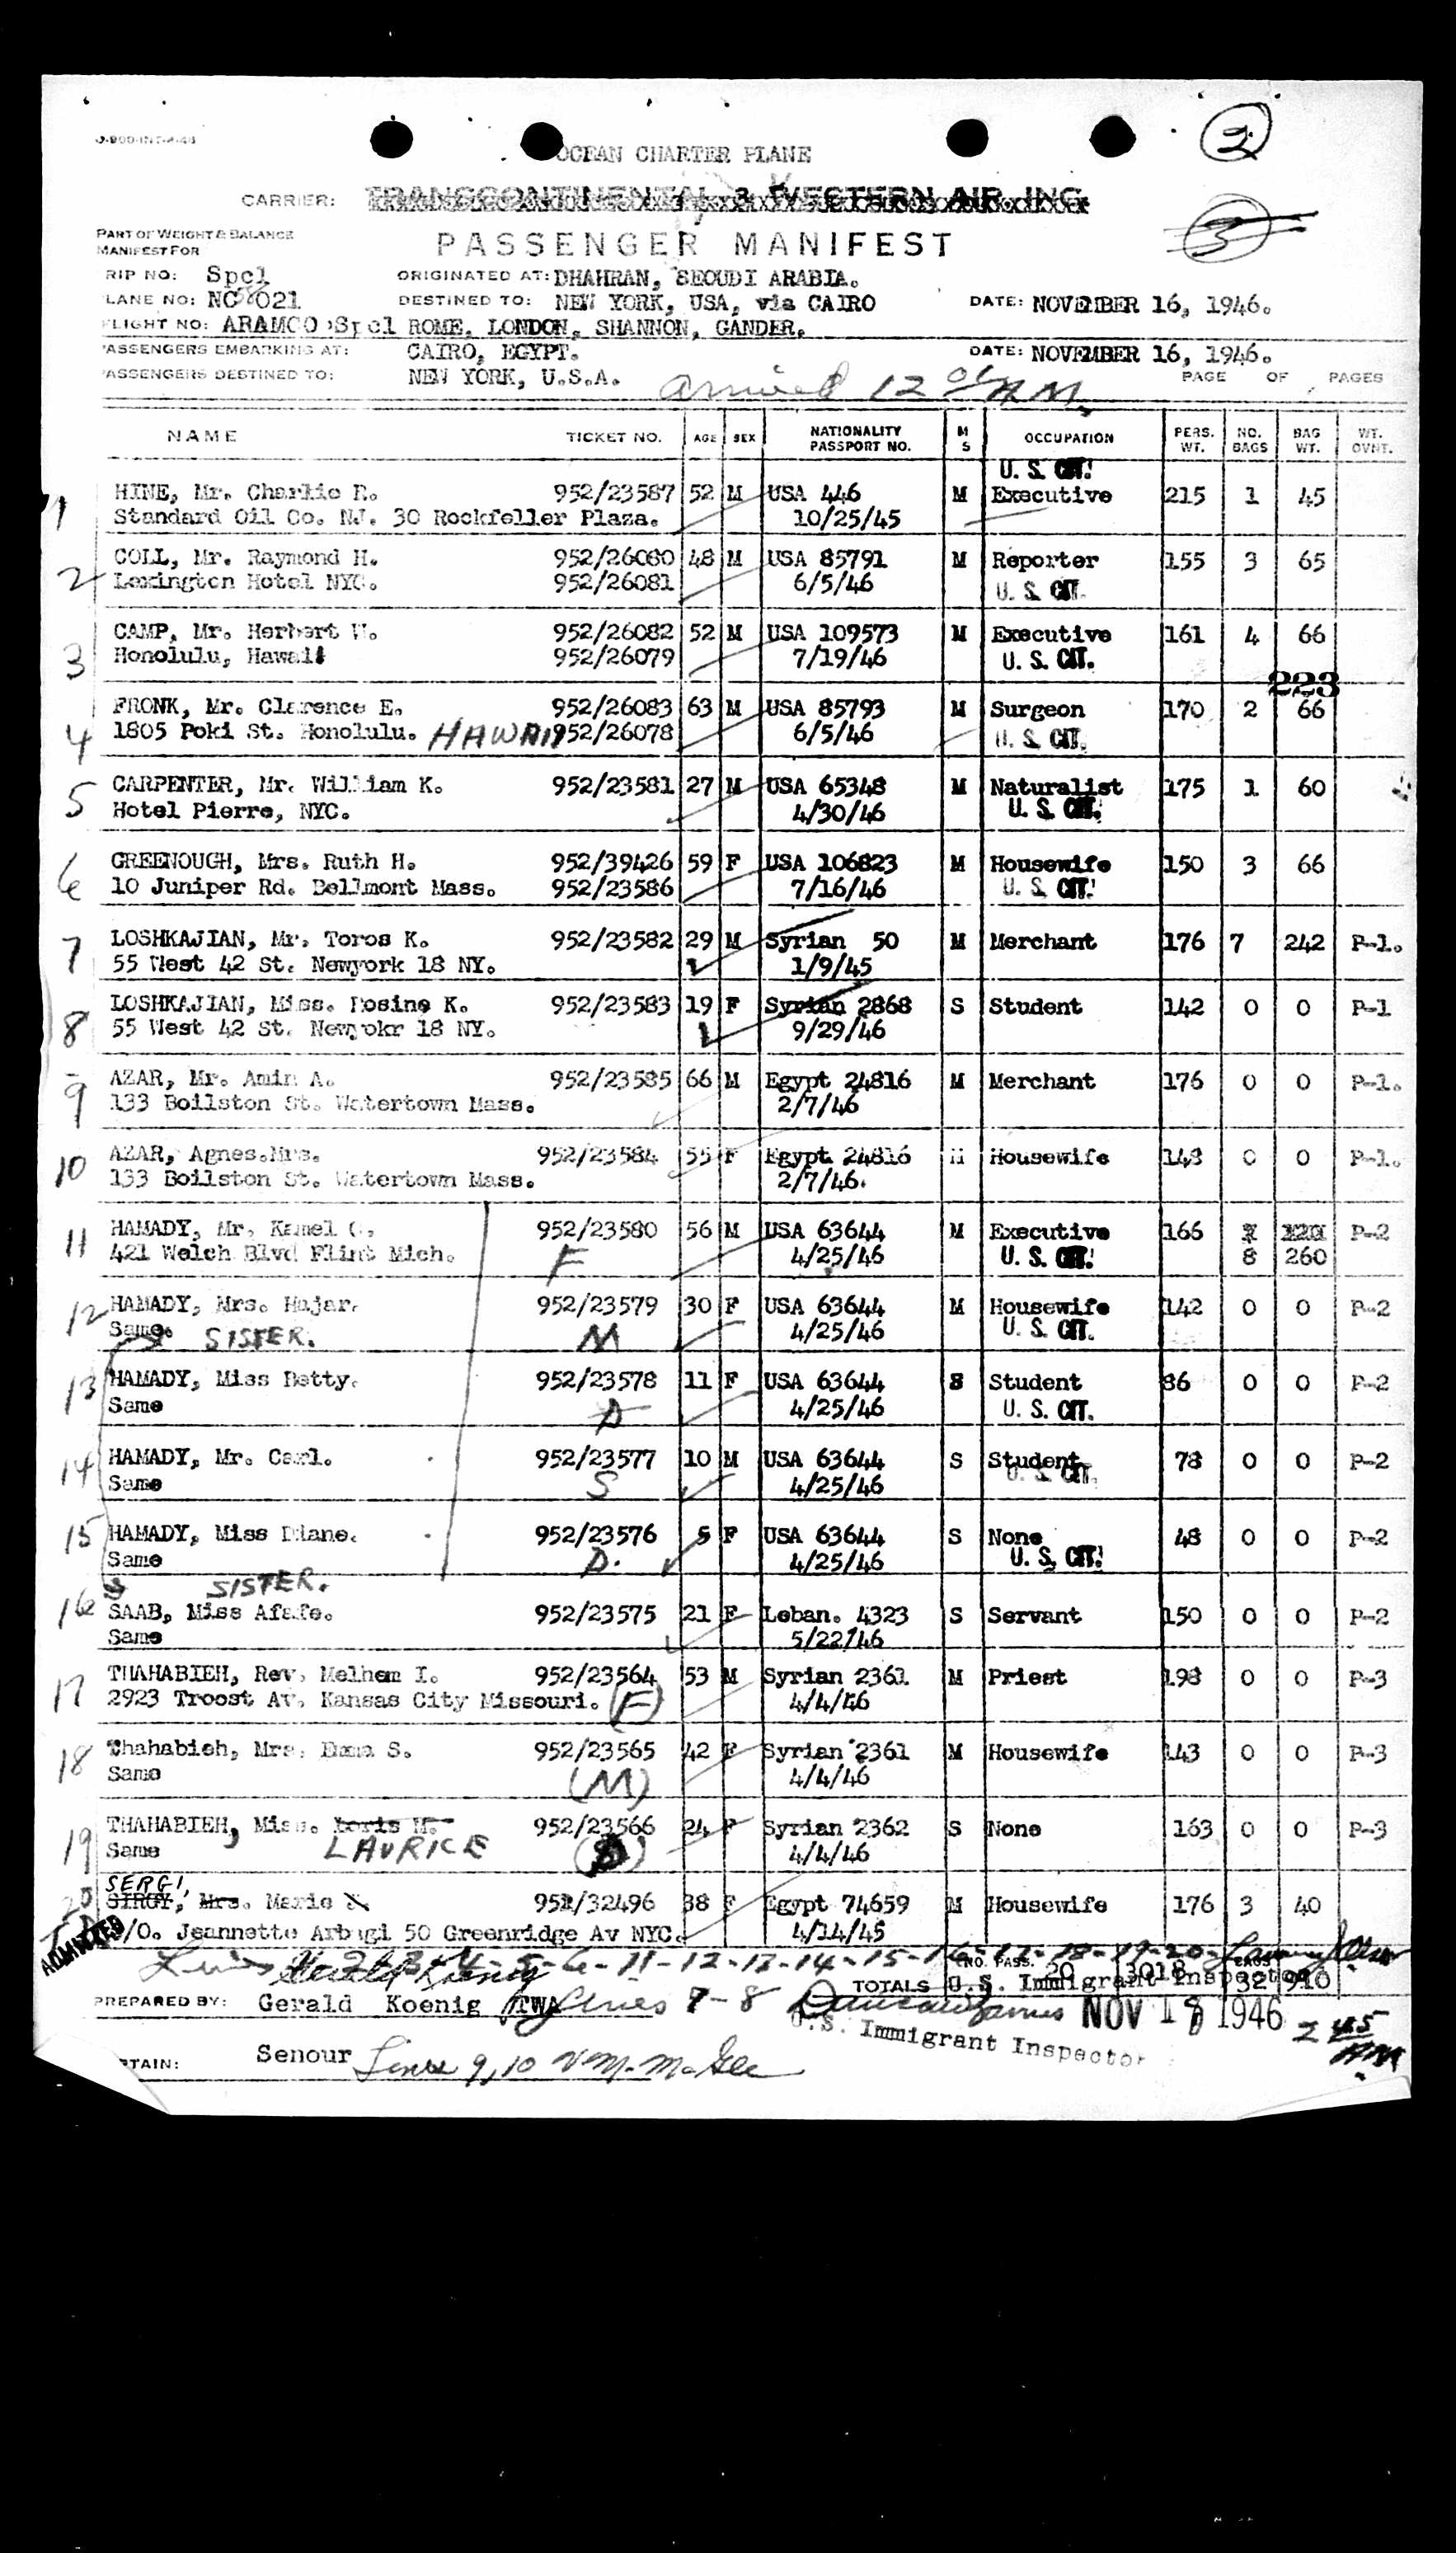 O-800-INT-4-46
2
OCEAN CHARTER PLANE
CARRIER: TRANSCONTINENTAL & WESTERN AIR, INC.
3
PART OF WEIGHT & BALANCE
MANIFEST FOR
PASSENGER MANIFEST
RIP NO: Spcl ORIGINATED AT: DHAHRAN, SEOUDI ARABIA.
LANE NO: NC 8021 DESTINED TO: NEW YORK, USA, via CAIRO DATE: NOVEMBER 16, 1946.
FLIGHT NO: ARAMCO Spcl ROME, LONDON, SHANNON, GANDER.
ASSENGERS EMBARKING AT: CAIRO, EGYPT. DATE: NOVEMBER 16, 1946.
ASSENGERS DESTINED TO: NEW YORK, U.S.A. arrived 12 01 AM. PAGE OF PAGES
NAME TICKET NO. AGE SEX NATIONALITY PASSPORT NO. M S OCCUPATION PERS. WT. NO. BAGS BAG WT. WT. OVNT.
U. S. CIT.
1 HINE, Mr. Charlie R. 952/23587 52 M USA 446 M Executive 215 1 45
Standard Oil Co. NJ. 30 Rockfeller Plaza. 10/25/45
2 COLL, Mr. Raymond H. 952/26080 48 M USA 85791 M Reporter 155 3 65
Lexington Hotel NYC. 952/26081 6/5/46 U. S. CIT.
3 CAMP, Mr. Herbert W. 952/26082 52 M USA 109573 M Executive 161 4 66
Honolulu, Hawaii 952/26079 7/19/46 U. S. CIT.
223
4 FRONK, Mr. Clarence E. 952/26083 63 M USA 85793 M Surgeon 170 2 66
1805 Poki St. Honolulu. HAWAII 952/26078 6/5/46 U. S. CIT.
5 CARPENTER, Mr. William K. 952/23581 27 M USA 65348 M Naturalist 175 1 60
Hotel Pierre, NYC. 4/30/46 U. S. CIT.
6 GREENOUGH, Mrs. Ruth H. 952/39426 59 F USA 106823 M Housewife 150 3 66
10 Juniper Rd. Bellmont Mass. 952/23586 7/16/46 U. S. CIT.
7 LOSHKAJIAN, Mr. Toros K. 952/23582 29 M Syrian 50 M Merchant 176 7 242 P-1.
55 West 42 St. Newyork 18 NY. 1/9/45
8 LOSHKAJIAN, Miss. Rosine K. 952/23583 19 F Syrian 2868 S Student 142 0 0 P-1
55 West 42 St. Newyokr 18 NY. 9/29/46
9 AZAR, Mr. Amin A. 952/23585 66 M Egypt 24816 M Merchant 176 0 0 P-1.
133 Boilston St. Watertown Mass. 2/7/46
10 AZAR, Agnes.Mrs. 952/23584 55 F Egypt 24816 M Housewife 148 0 0 P-1.
133 Boilston St. Watertown Mass. 2/7/46.
11 HAMADY, Mr. Kamel G. 952/23580 56 M USA 63644 M Executive 166 120 P-2
421 Welch Blvd Flint Mich. F 4/25/46 U. S. CIT. 8 260
12 HAMADY, Mrs. Hajar. 952/23579 30 F USA 63644 M Housewife 142 0 0 P-2
Same. SISTER. M 4/25/46 U. S. CIT.
13 HAMADY, Miss Betty. 952/23578 11 F USA 63644 S Student 86 0 0 P-2
Same D 4/25/46 U. S. CIT.
14 HAMADY, Mr. Carl. 952/23577 10 M USA 63644 S Student 78 0 0 P-2
Same S 4/25/46 U. S. CIT.
15 HAMADY, Miss Diane. 952/23576 5 F USA 63644 S None 48 0 0 P-2
Same D. 4/25/46 U. S. CIT.
SISTER.
16 SAAB, Miss Afafe. 952/23575 21 F Leban. 4323 S Servant 150 0 0 P-2
Same 5/22/46
17 THAHABIEH, Rev. Melhem I. 952/23564 53 M Syrian 2361 M Priest 198 0 0 P-3
2923 Troost Av. Kansas City Missouri. (F) 4/4/46
18 Thahabieh, Mrs. Emma S. 952/23565 42 F Syrian 2361 M Housewife 143 0 0 P-3
Same (M) 4/4/46
19 THAHABIEH, Miss. Loris M. 952/23566 24 F Syrian 2362 S None 163 0 0 P-3
Same LAURICE (D) 4/4/46
SERGI,
20 SIRGY, Mrs. Marie N 952/32496 38 F Egypt 74659 M Housewife 176 3 40
/O. Jeannette Arbagi 50 Greenridge Av NYC. 4/14/45
ADMITTED
Lines 2-3-4-5-6-11-12-13-14-15-16-17-18-19-20-
NO. PASS. 20 3018 BAGS 32 910
TOTALS U.S. Immigrant Inspector
PREPARED BY: Gerald Koenig /TWA Lines 7-8 NOV 18 1946 2 45 AM
U.S. Immigrant Inspector
TAIN: Senour Lines 9,10 V M. McGee